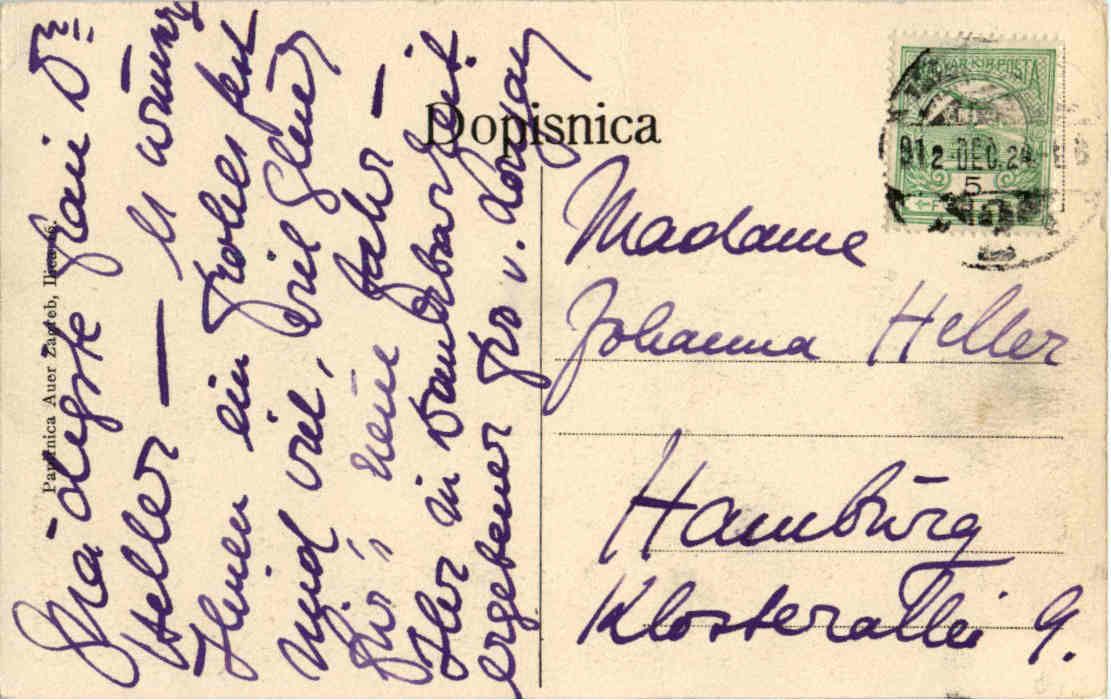 Gnädigste Frau Dr
Heller — Es wünscht
Ihnen ein frohes Fest
und viel, viel Glück
für's neue Jahr —
Ihr in Dankbarkeit
ergebener v.
Papirnica Auer Zagreb, Ilica
Dopisnica
MAGYAR KIR. POSTA
912 DEC. 24
5
Madame
Johanna Heller
Hamburg
Klosterallee 9.